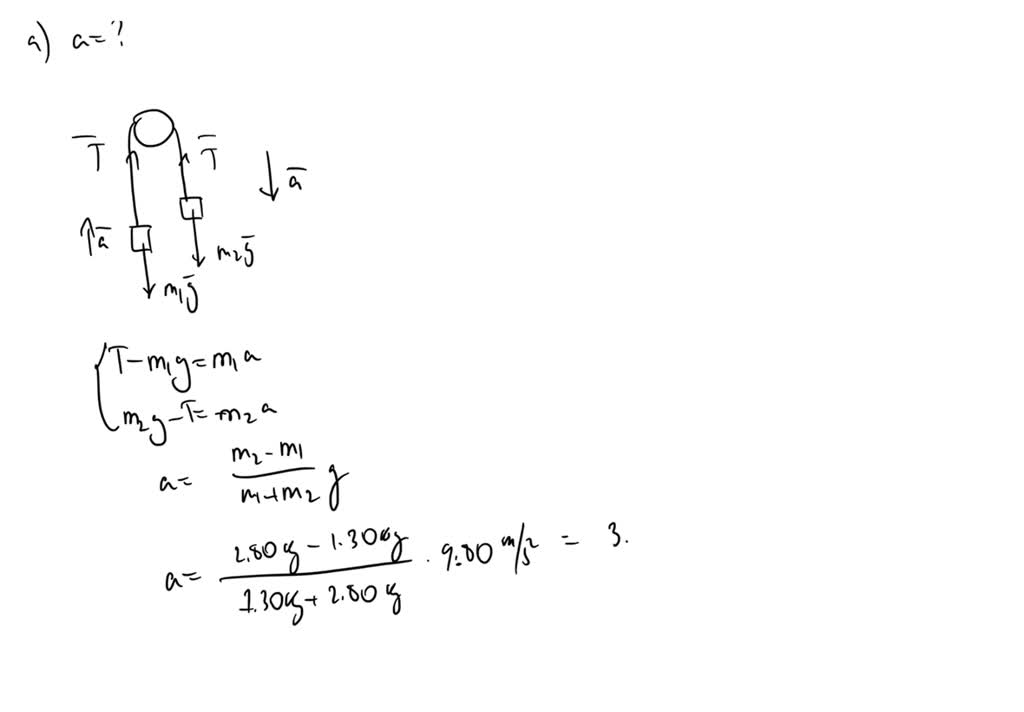 a) a=?
T̅ T̅
a̅
a̅
m₂g̅
m₁g̅
T-m₁g=m₁a
m₂g-T=m₂a
a= m₂-m₁ / m₁+m₂ g
a= 2.80kg - 1.30kg / 1.30kg + 2.80kg . 9.80 m/s² = 3.